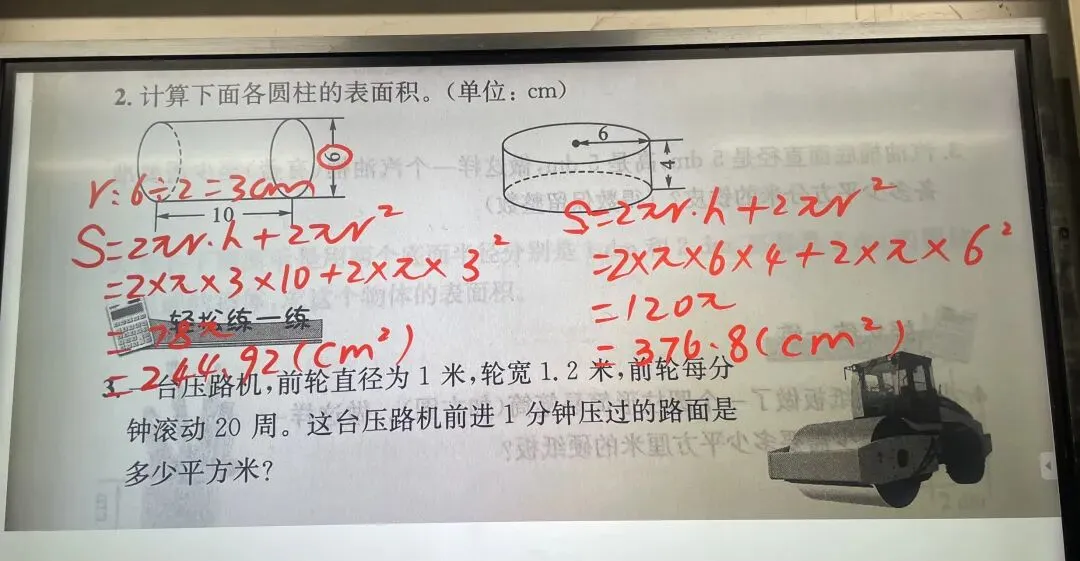 2. 计算下面各圆柱的表面积。(单位：cm)
6
6
4
10
r：6÷2＝3cm
S＝2πr·h＋2πr²
＝2×π×3×10＋2×π×3²
＝78π
＝244.92(cm²)
S＝2πr·h＋2πr²
＝2×π×6×4＋2×π×6²
＝120π
＝376.8(cm²)
轻松练一练
3. 一台压路机，前轮直径为 1 米，轮宽 1.2 米，前轮每分
钟滚动 20 周。这台压路机前进 1 分钟压过的路面是
多少平方米？